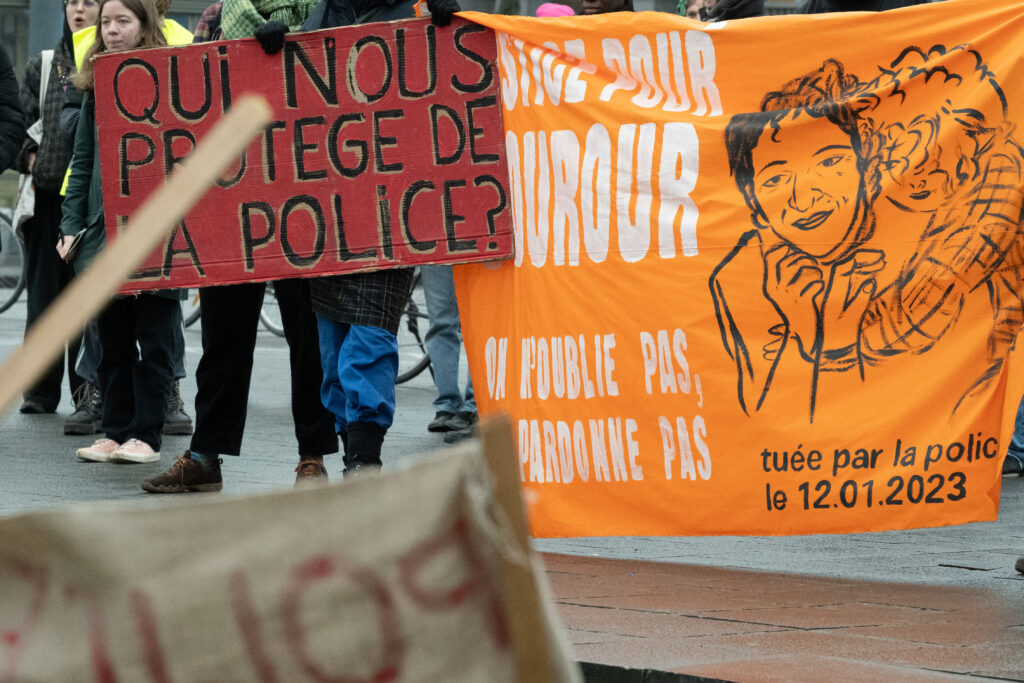 QUI NOUS
PROTEGE DE
LA POLICE?
STICE POUR
OUROUR
ON N'OUBLIE PAS,
PARDONNE PAS
tuée par la polic
le 12.01.2023